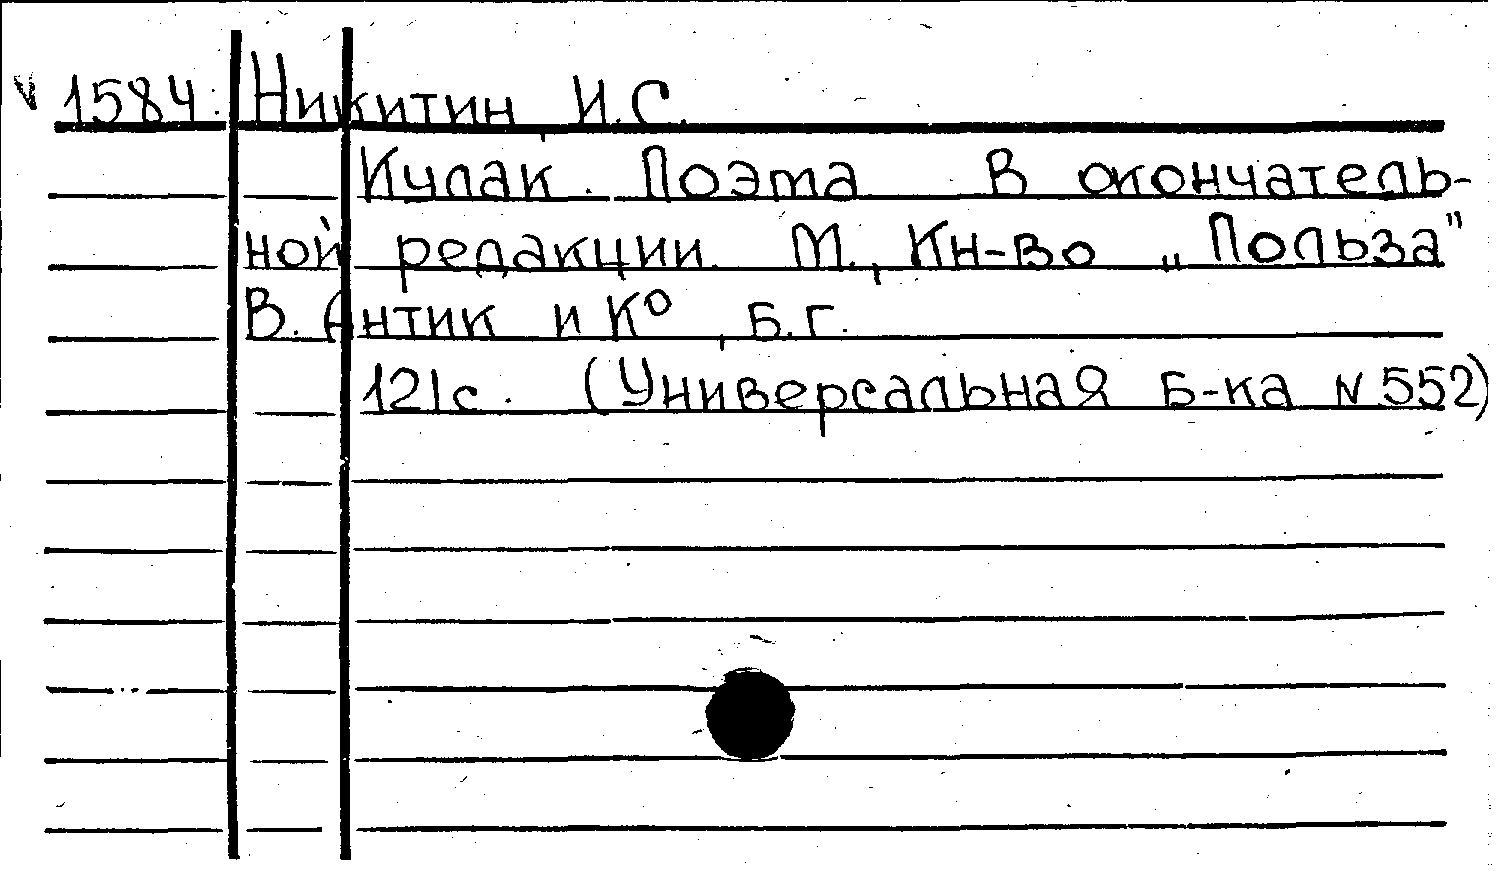 v 1584. Никитин, И.С.
Кулак. Поэта В окончатель-
ной редакции. М., Кн-во „Польза"
В. Антик и К⁰, Б.г.
121с. (Универсальная Б-ка N 552)